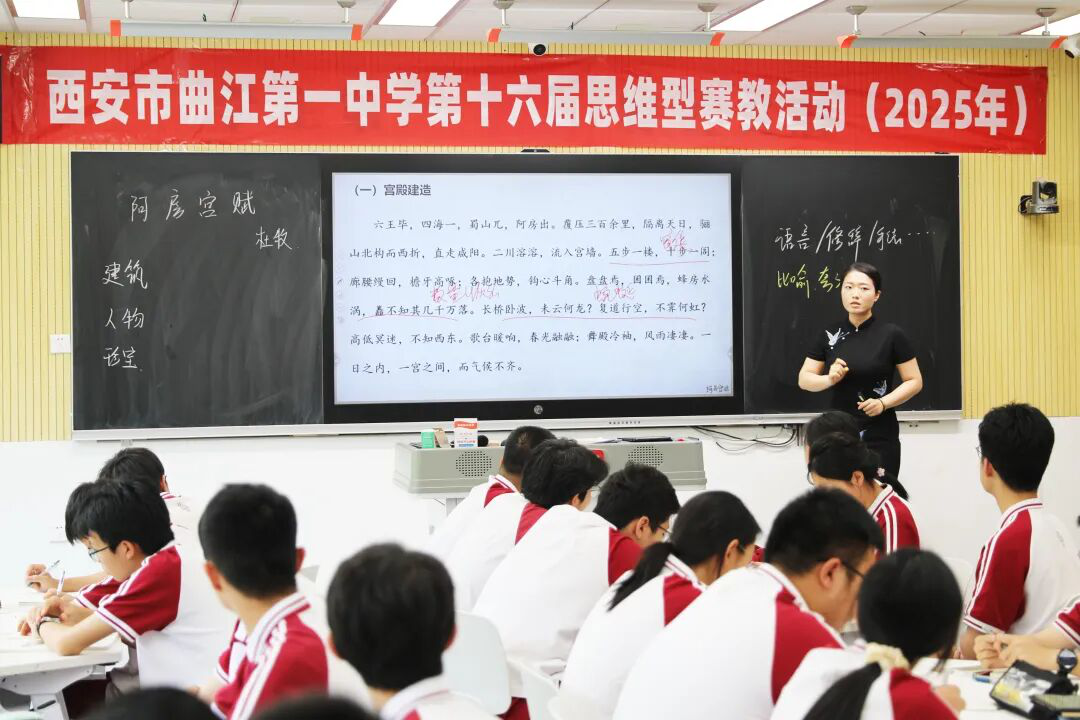 西安市曲江第一中学第十六届思维型赛教活动（2025年）
阿房宫赋
杜牧
建筑
人物
珍宝
（一）宫殿建造
六王毕，四海一，蜀山兀，阿房出。覆压三百余里，隔离天日。骊
山北构而西折，直走咸阳。二川溶溶，流入宫墙。五步一楼，十步一阁；
廊腰缦回，檐牙高啄；各抱地势，钩心斗角。盘盘焉，囷囷焉，蜂房水
涡，矗不知其几千万落。长桥卧波，未云何龙？复道行空，不霁何虹？
高低冥迷，不知西东。歌台暖响，春光融融；舞殿冷袖，风雨凄凄。一
日之内，一宫之间，而气候不齐。
语言/修辞/手法……
比喻.夸